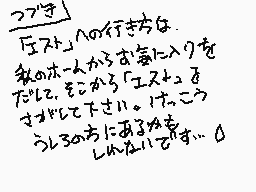 つづき
「エスト」への行き方は、
私のホームからお気に入りを
だして、そこから「エスト」を
さがして下さい。けっこう
うしろの方にあるかも
しんないです…